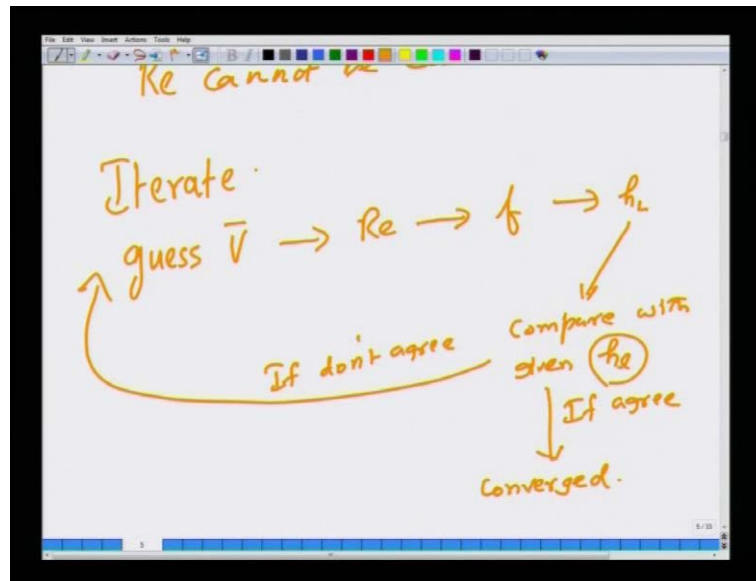 File Edit View Insert Actions Tools Help
Re cannot be
Iterate.
guess V̄ → Re → f → hL
Compare with
given hl
If don't agree
If agree
Converged.
5/35
5